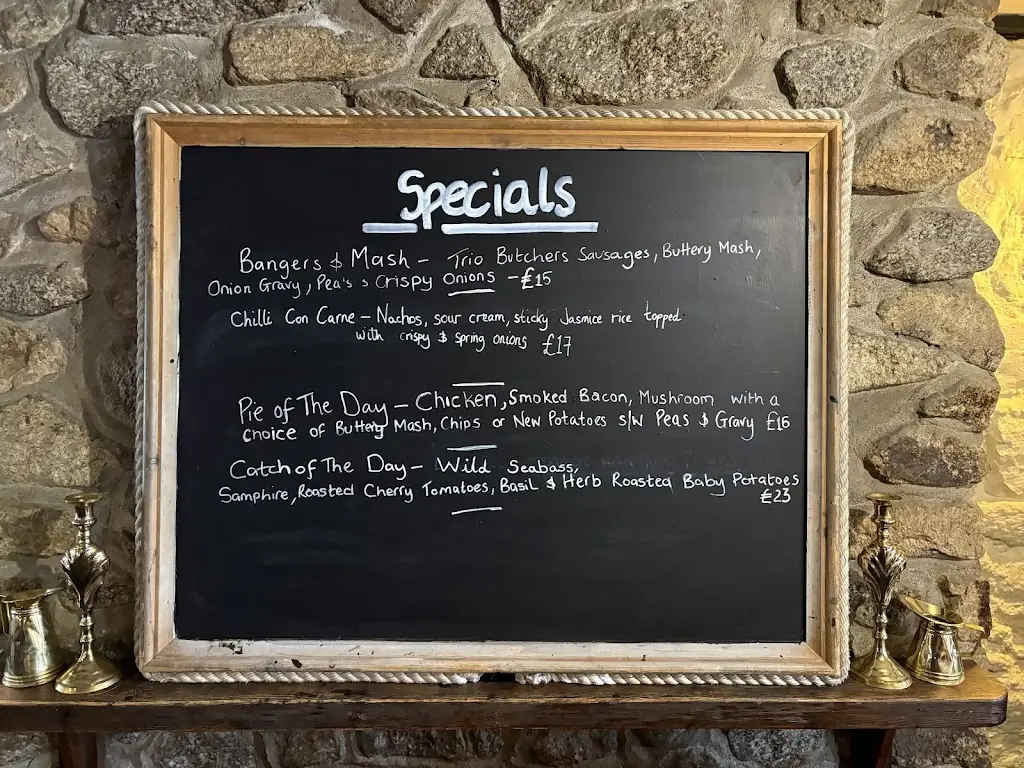 Specials
Bangers & Mash - Trio Butchers Sausages, Buttery Mash,
Onion Gravy, Pea's & Crispy Onions - £15
Chilli Con Carne - Nachos, sour cream, sticky Jasmice rice topped
with crispy & spring onions £17
Pie of The Day - Chicken, Smoked Bacon, Mushroom with a
choice of Buttery Mash, Chips or New Potatoes s/w Peas & Gravy £16
Catch of The Day - Wild Seabass,
Samphire, Roasted Cherry Tomatoes, Basil & Herb Roasted Baby Potatoes
£23